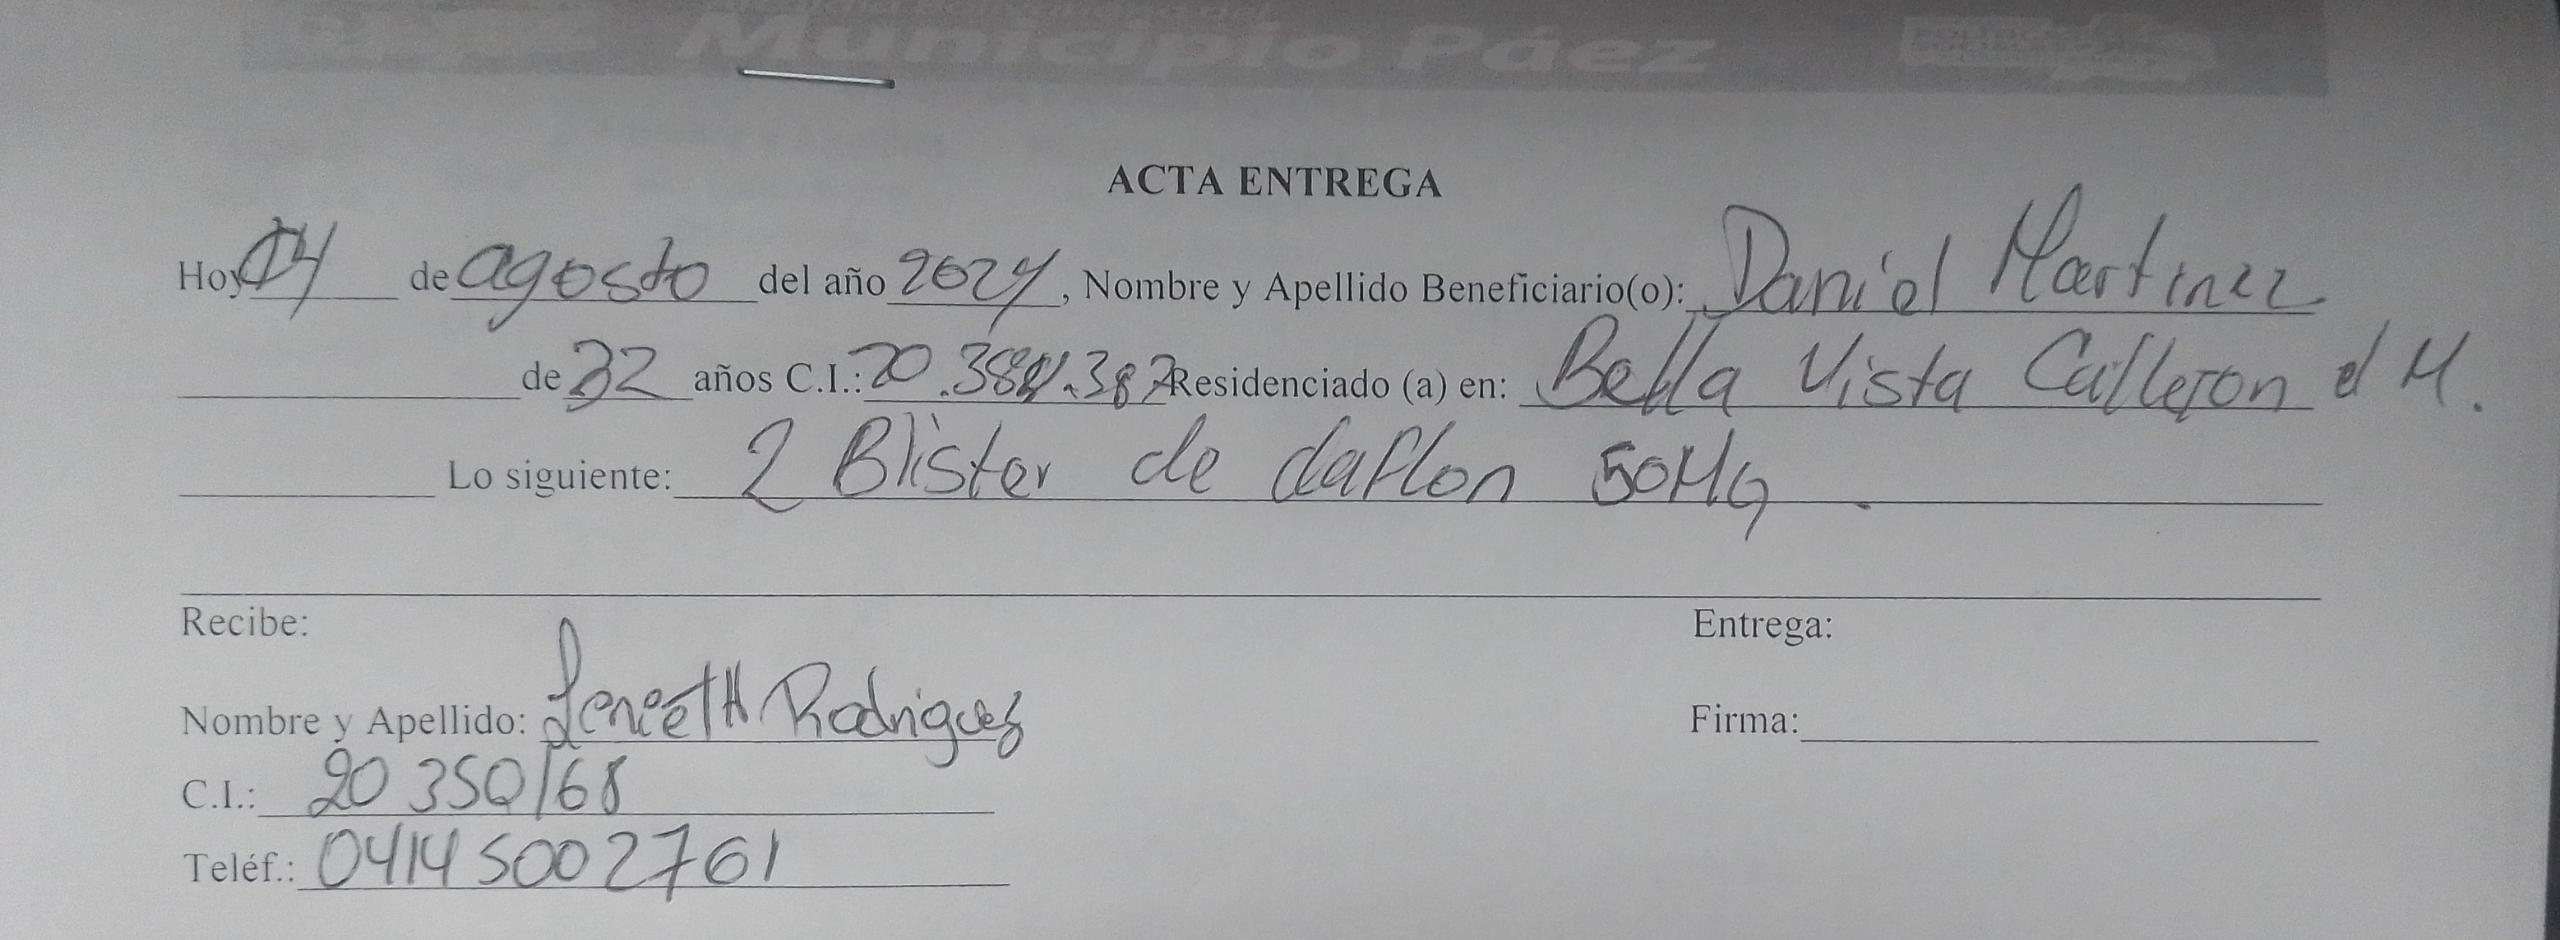 Municipio Páez
ACTA ENTREGA
Hoy 14 de agosto del año 2024, Nombre y Apellido Beneficiario(o): Daniel Martinez
de 32 años C.I.: Residenciado (a) en: Bella Vista Callejon el M.
Lo siguiente: 2 Blister de daflon 50Mg.
Recibe:
Entrega:
Nombre y Apellido: Rodriguez
Firma:
C.I.: 20 350168
Teléf.: 0414 5002761